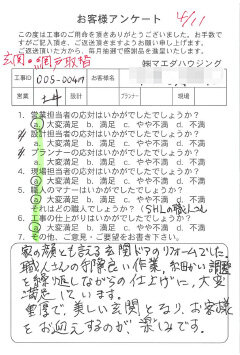 お客様アンケート 4/11
この度は工事のご用命を頂きありがとうございました。お手数で
すがご記入頂き、ご返送頂きますようお願い申し上げます。
ご返送頂いた方から、毎月抽選で感謝品を進呈いたします。
玄関・網戸取替 ㈱マエダハウジング
工事ID 005-00447 お客様名
営業 設計 プランナー 現場
1. 営業担当者の応対はいかがでしたでしょうか？
a. 大変満足 b. 満足 c. やや不満 d. 不満
2. 設計担当者の応対はいかがでしたでしょうか？
a. 大変満足 b. 満足 c. やや不満 d. 不満
3. プランナーの応対はいかがでしたでしょうか？
a. 大変満足 b. 満足 c. やや不満 d. 不満
4. 現場担当者の応対はいかがでしたでしょうか？
a. 大変満足 b. 満足 c. やや不満 d. 不満
5. 職人のマナーはいかがでしたでしょうか？
a. 大変満足 b. 満足 c. やや不満 d. 不満
それはどの職人でしょうか？
6. 工事の仕上がりはいかがでしたでしょうか？
a. 大変満足 b. 満足 c. やや不満 d. 不満
7. その他、ご意見・ご要望をお書き下さい。
家の顔とも言える玄関ドアのリフォームでした。
職人さんの手際良い作業、細かい調整
を繰り返しながらの仕上げに、大変
満足しています。
重厚で、美しい玄関となり、お客様
をお迎えするのが、楽しみです。